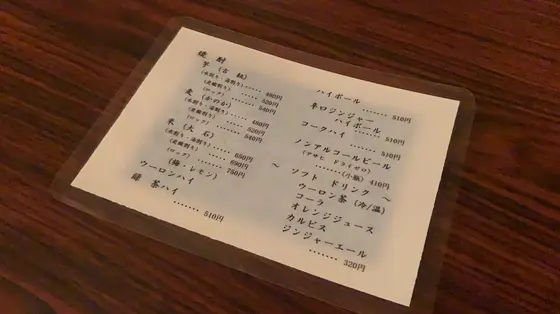 焼酎
芋（古秘）
（水割り・湯割り）…… 480円
（炭酸割り） …… 520円
（ロック） …… 540円
麦（かのか）
（水割り・湯割り）…… 480円
（炭酸割り） …… 520円
（ロック） …… 540円
米（大石）
（水割り・湯割り）…… 650円
（炭酸割り） …… 690円
（ロック） …… 750円
（梅・レモン）
ウーロンハイ
緑茶ハイ
……… 510円
ハイボール
……… 510円
辛口ジンジャー
ハイボール
コークハイ
……… 510円
ノンアルコールビール
（アサヒ ドライゼロ）
………（小瓶）410円
～ ソフト ドリンク ～
ウーロン茶（冷/温）
コーラ
オレンジジュース
カルピス
ジンジャーエール
……… 320円